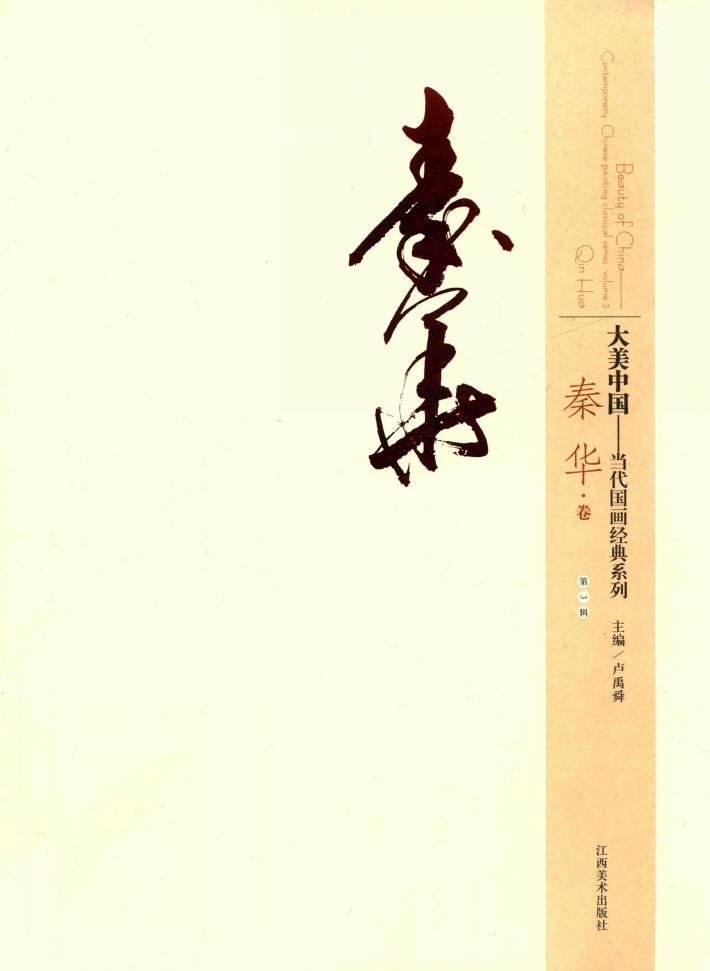 秦華
Beauty of China——
Contemporary Chinese painting classical series volume 3
Qin Hua
大美中国——当代国画经典系列
秦华·卷
第3辑
主编/卢禹舜
江西美术出版社